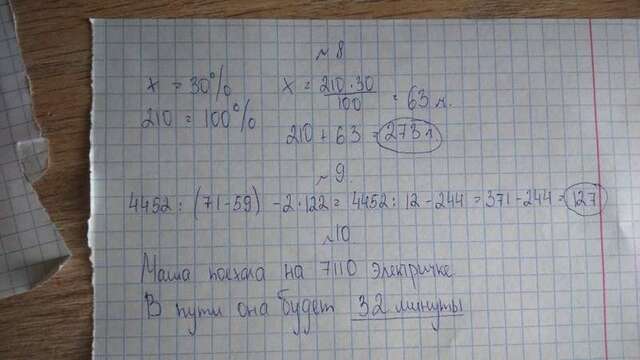 №8
x = 30%    x = 210·30/100 = 63 л.
210 = 100%    210 + 63 = 273 л.
№9
4452 : (71-59) - 2·122 = 4452 : 12 - 244 = 371 - 244 = 127
№10
Маша поехала на 7110 электричке
В пути она будет 32 минуты